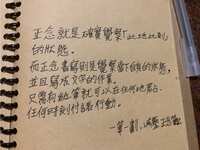 正念就是確實覺察「此時此刻」
的狀態。
而正念書寫則是覺察當下的狀態，
並且寫成文字的作業。
只需要紙筆就可以在任何地方、
任何時刻付諸行動。
一筆一劃，